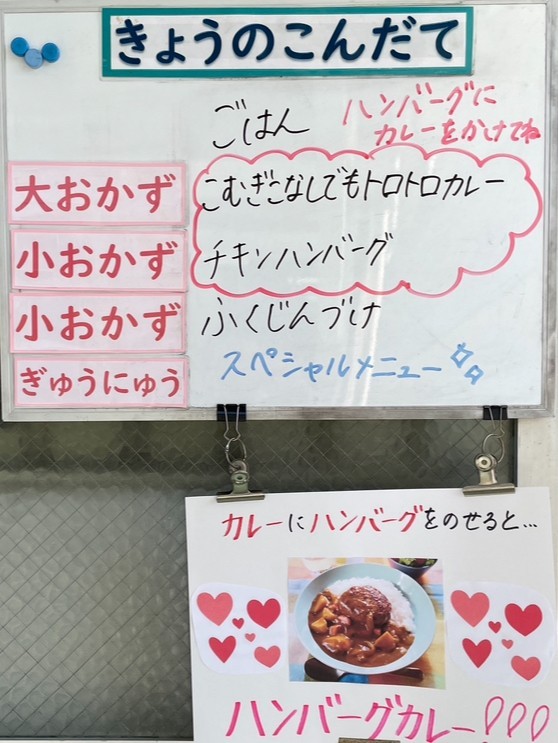 きょうのこんだて
ごはん
ハンバーグに
カレーをかけてね
大おかず
こむぎこなしでもトロトロカレー
小おかず
チキンハンバーグ
小おかず
ふくじんづけ
ぎゅうにゅう
スペシャルメニュー
カレーにハンバーグをのせると…
ハンバーグカレー!!!